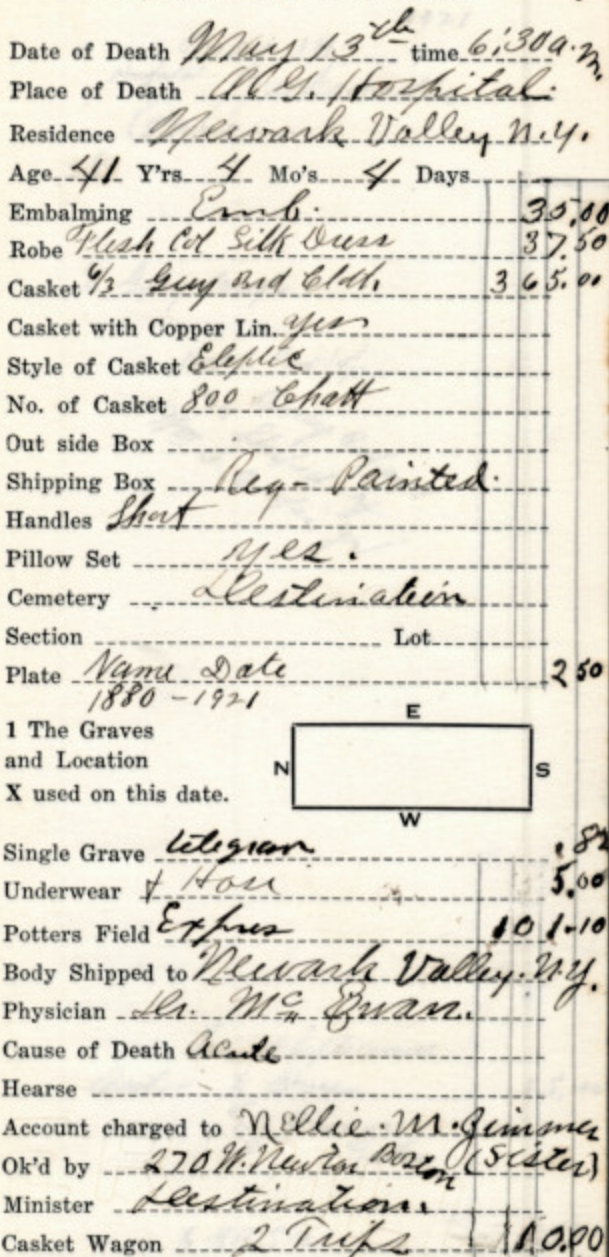 Date of Death May 13th time 6:30 a.m.
Place of Death Hospital.
Residence Newark Valley N.Y.
Age 41 Y'rs 4 Mo's 4 Days
Embalming Emb. 35.00
Robe Flesh Col Silk Dress 37.50
Casket 6/3 Grey Brd Cloth 365.00
Casket with Copper Lin. yes
Style of Casket Eleptic
No. of Casket 800 Chatt
Out side Box
Shipping Box Reg- Painted.
Handles Short
Pillow Set yes.
Cemetery Destination
Section Lot
Plate Name Date 2 50
1880-1921
1 The Graves
and Location
X used on this date.
E
N
S
W
Single Grave telegram .82
Underwear & Hose 5.00
Potters Field Expres 101.10
Body Shipped to Newark Valley. N.Y.
Physician Dr. Mc Ewan.
Cause of Death Acute
Hearse
Account charged to Nellie. M. Zimmer
Ok'd by 270 W. Newton Boston (Sister)
Minister Destination.
Casket Wagon 2 Trips 10.00